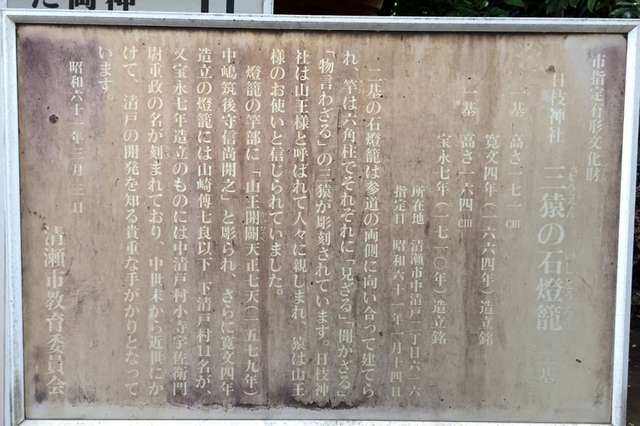 市指定有形文化財
日枝神社 三猿の石燈籠 二基
一基 高さ一七一cm
寛文四年（一六六四年）造立銘
一基 高さ一六四cm
宝永七年（一七一〇年）造立銘
所在地 清瀬市中清戸二丁目六一六
指定日 昭和六十一年一月十四日
二基の石燈籠は参道の両側に向い合って建てら
れ、竿は六角柱でそれぞれに「見ざる」「聞かざる」
「物言わざる」の三猿が彫刻されています。日枝神
社は山王様と呼ばれて人々に親しまれ、猿は山王
様のお使いと信じられていました。
燈籠の竿部に「山王開闢天正七天（一五七九年）
中嶋筑後守信尚開之」と彫られ、さらに寛文四年
造立の燈籠には山崎傳七良以下、下清戸村11名が、
又宝永七年造立のものには中清戸村小寺宇佐衛門
尉重政の名が刻まれており、中世末から近世にか
けて、清戸の開発を知る貴重な手がかりとなって
います。
昭和六十一年三月 二日
清瀬市教育委員会